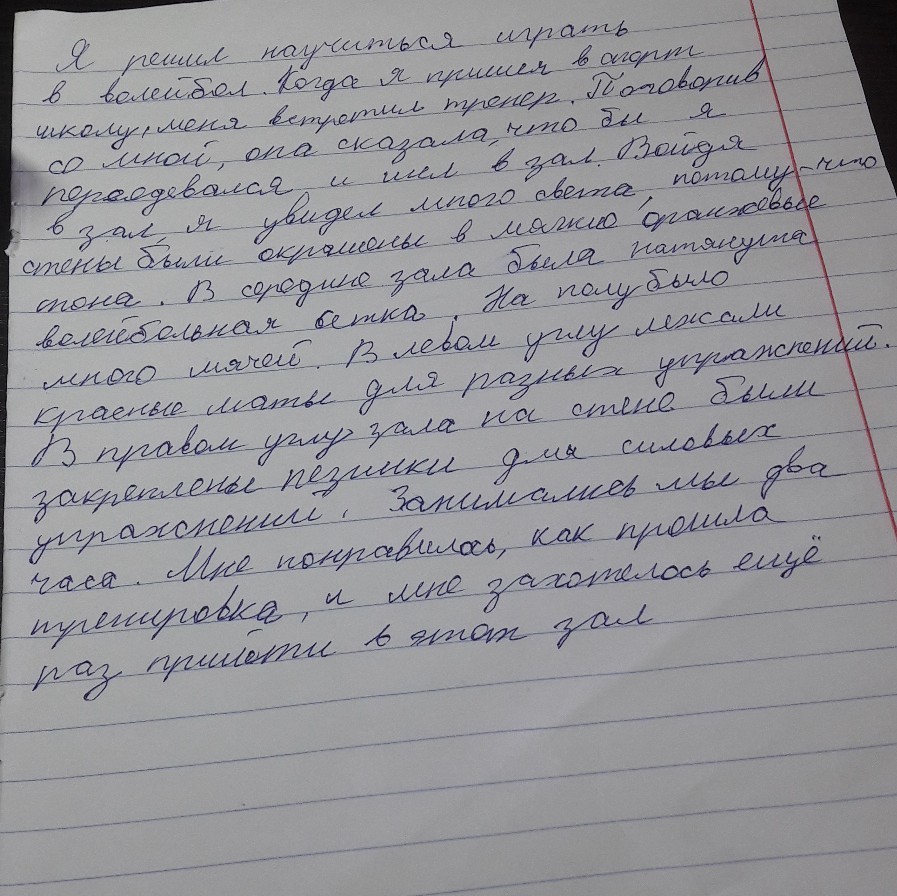 Я решил научиться играть
в волейбол. Когда я пришел в спорт
школу, меня встретил тренер. Поговорив
со мной, она сказала, что бы я
переодевался и шел в зал. Войдя
в зал, я увидел много света, потому-что
стены были окрашены в мягкие оранжевые
тона. В середине зала была натянута
волейбольная сетка. На полу было
много мячей. В левом углу лежали
красные маты для разных упражнений.
В правом углу зала на стене были
закреплены резинки для силовых
упражнений. Занимались мы два
часа. Мне понравилось, как прошла
тренировка, и мне захотелось ещё
раз прийти в этот зал